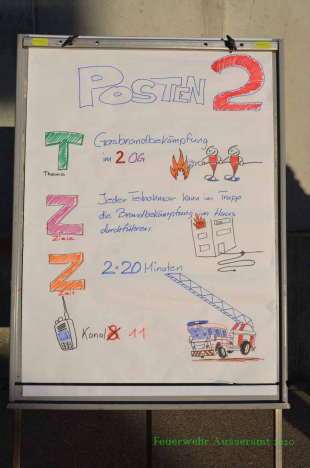 POSTEN 2
T
Thema
Gasbrandbekämpfung
im 2 OG
Z
Ziele
Jeder Teilnehmer kann im Trupp
die Brandbekämpfung im Haus
durchführen.
Z
Zeit
2·20 Minuten
Kanal 8 11
Feuerwehr Ausseramt 2020